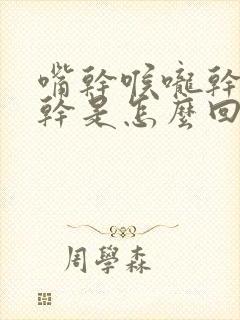 嘴幹喉嚨幹
幹是怎麼回
周學森